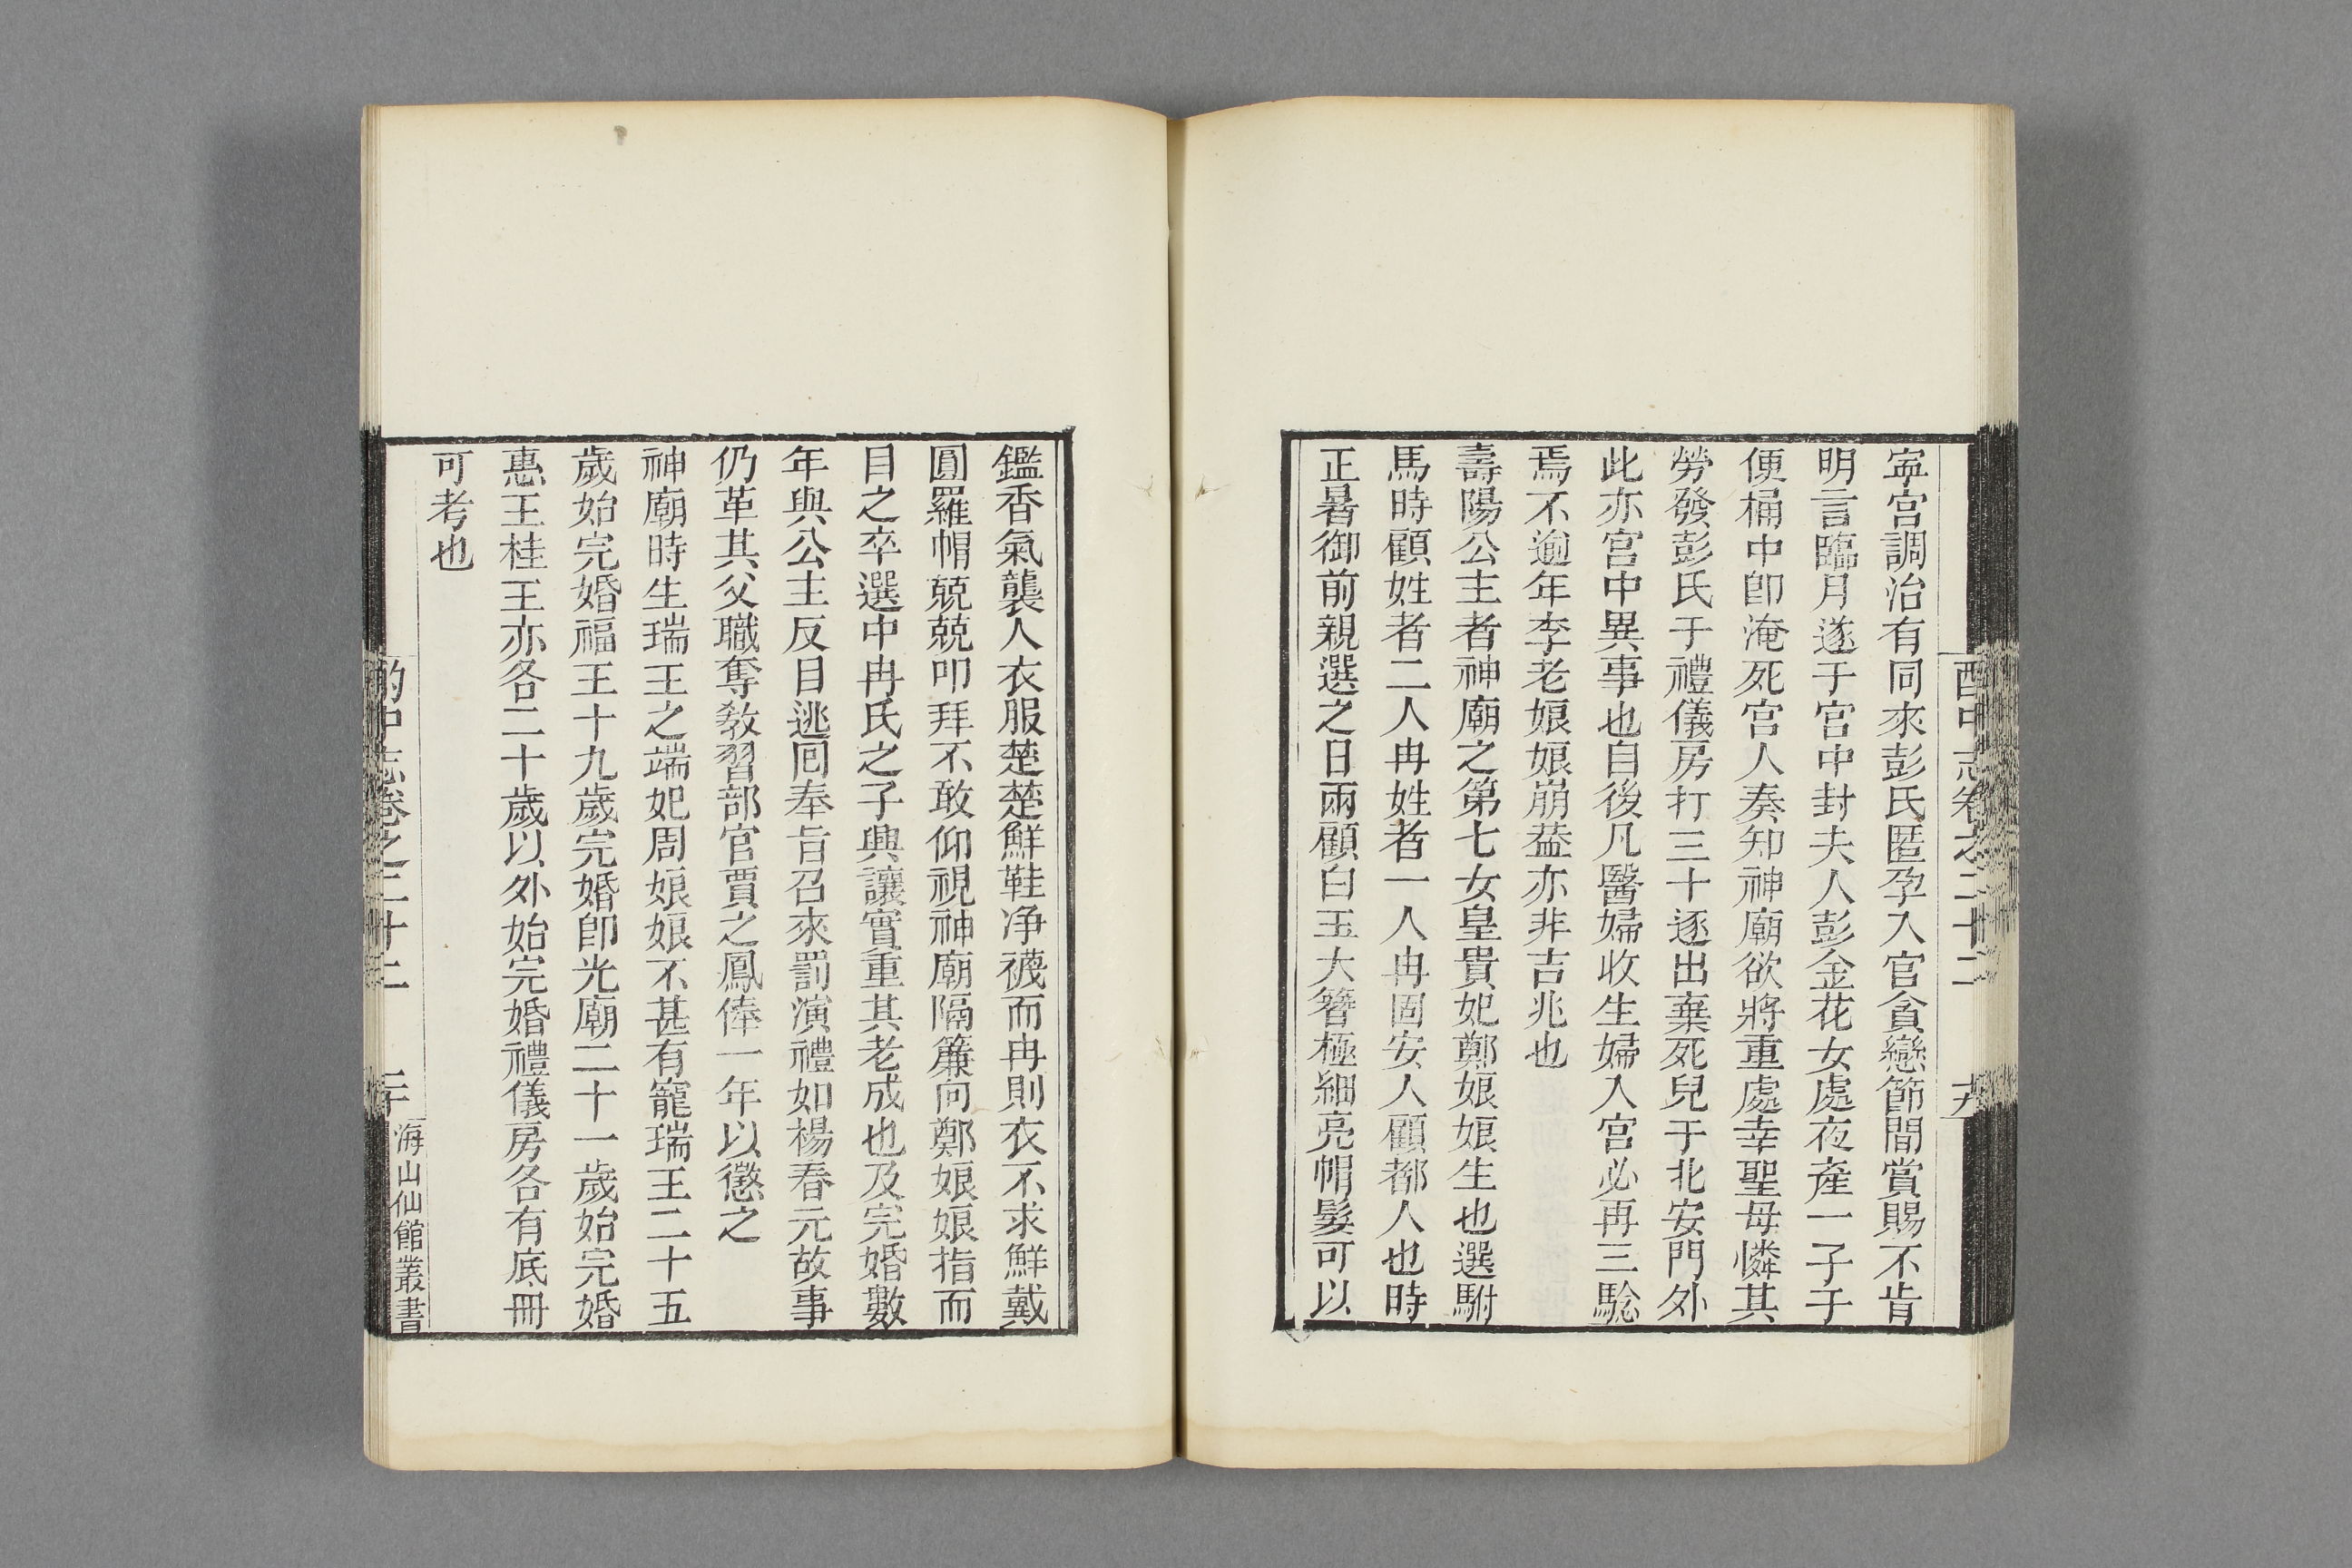 酌中志卷之二十二 十九
寍宮調治有同來彭氏匿孕入官貪戀節間賞賜不肯
明言臨月遂于宮中封夫人彭金花女處夜產一子子
便桶中卽淹死宮人奏知神廟欲將重處幸聖母憐其
勞發彭氏于禮儀房打三十逐出棄死兒于北安門外
此亦宮中異事也自後凡醫婦收生婦入宮必再三騐
焉不逾年李老娘娘崩葢亦非吉兆也
壽陽公主者神廟之第七女皇貴妃鄭娘娘生也選駙
馬時顧姓者二人冉姓者一人冉固安人顧都人也時
正暑御前親選之日兩顧白玉大簪極細亮帽髮可以
鑑香氣襲人衣服楚楚鮮鞋净襪而冉則衣不求鮮戴
圓羅帽兢兢叩拜不敢仰視神廟隔簾向鄭娘娘指而
目之卒選中冉氏之子興讓實重其老成也及完婚數
年與公主反目逃囘奉旨召來罰演禮如楊春元故事
仍革其父職奪教習部官賈之鳳俸一年以懲之
神廟時生瑞王之端妃周娘娘不甚有寵瑞王二十五
歲始完婚福王十九歲完婚卽光廟二十一歲始完婚
惠王桂王亦各二十歲以外始完婚禮儀房各有底冊
可考也
酌中志卷之二十二 二十 海山仙館叢書